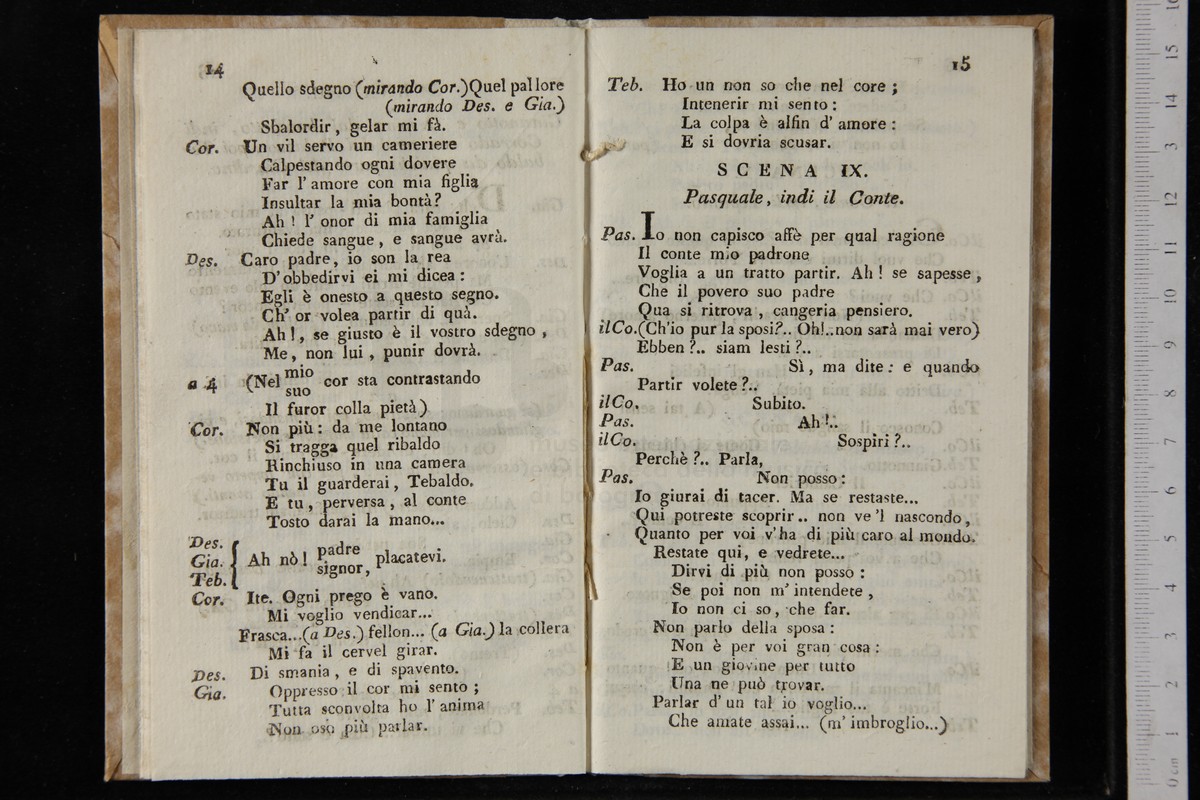 14
Quello sdegno (mirando Cor.) Quel pallore
(mirando Des. e Gia.)
Sbalordir, gelar mi fà.
Cor. Un vil servo un cameriere
Calpestando ogni dovere
Far l'amore con mia figlia
Insultar la mia bontà?
Ah! l'onor di mia famiglia
Chiede sangue, e sangue avrà.
Des. Caro padre, io son la rea
D'obbedirvi ei mi dicea:
Egli è onesto a questo segno.
Ch'or volea partir di quà.
Ah!, se giusto è il vostro sdegno,
Me, non lui, punir dovrà.
a 4 (Nel mio suo cor sta contrastando
Il furor colla pietà)
Cor. Non più: da me lontano
Si tragga quel ribaldo
Rinchiuso in una camera
Tu il guarderai, Tebaldo.
E tu, perversa, al conte
Tosto darai la mano...
Des.
Gia. { Ah nò! padre signor, placatevi.
Teb.
Cor. Ite. Ogni prego è vano.
Mi voglio vendicar...
Frasca...(a Des.) fellon... (a Gia.) la collera
Mi fa il cervel girar.
Des. Di smania, e di spavento.
Gia. Oppresso il cor mi sento;
Tutta sconvolta ho l'anima
Non oso più parlar.
15
Teb. Ho un non so che nel core;
Intenerir mi sento:
La colpa è alfin d'amore:
E si dovria scusar.
SCENA IX.
Pasquale, indi il Conte.
Pas. Io non capisco affè per qual ragione
Il conte mio padrone
Voglia a un tratto partir. Ah! se sapesse,
Che il povero suo padre
Qua si ritrova, cangeria pensiero.
il Co. (Ch'io pur la sposi?.. Oh!..non sarà mai vero)
Ebben?.. siam lesti?..
Pas. Sì, ma dite: e quando
Partir volete?..
il Co. Subito.
Pas. Ah!..
il Co. Sospiri?..
Perchè?.. Parla,
Pas. Non posso:
Io giurai di tacer. Ma se restaste...
Qui potreste scoprir.. non ve'l nascondo,
Quanto per voi v'ha di più caro al mondo.
Restate qui, e vedrete...
Dirvi di più non posso:
Se poi non m'intendete,
Io non ci so, che far.
Non parlo della sposa:
Non è per voi gran cosa:
E un giovine per tutto
Una ne può trovar.
Parlar d'un tal io voglio...
Che amate assai... (m'imbroglio...)